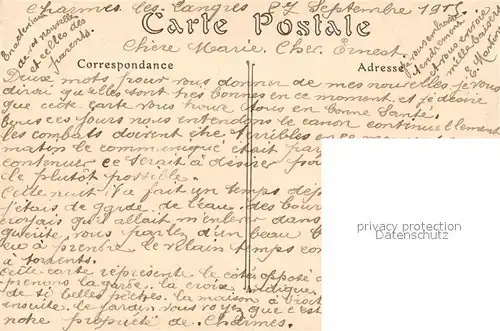 Charmes les Langres 27 Septembre 1915
Carte Postale
Chère Marie, Cher Ernest,
Correspondance
Adresse
En attendant
de vos nouvelles
et celles des
parents.
je vous embrasse
tendrement
et vous envoie
mille baisers
E. Martin
Deux mots pour vous donner de mes nouvelles je vous
dirai qu'elles sont très bonnes en ce moment, et je désire
que cette carte vous trouve tous en bonne santé.
Tous ces jours nous entendons le canon continuellement
les combats doivent être terribles en ce
matin le communiqué était
continuer ce serait à désirer pour
le plutôt possible.
Cette nuit il a fait un temps
j'étais de garde de l'eau, des
croyais qu'il allait m'enlever dans
guérite, vous parlez d'un beau
à prendre, le vilain temps
à torrents.
Cette carte représente le côté opposé
prenons la garde. la croix indique
de si belles pêches. la maison à
ensuite. le jardin vous voyez que c'est
notre propriété de Charmes.
privacy protection
Datenschutz